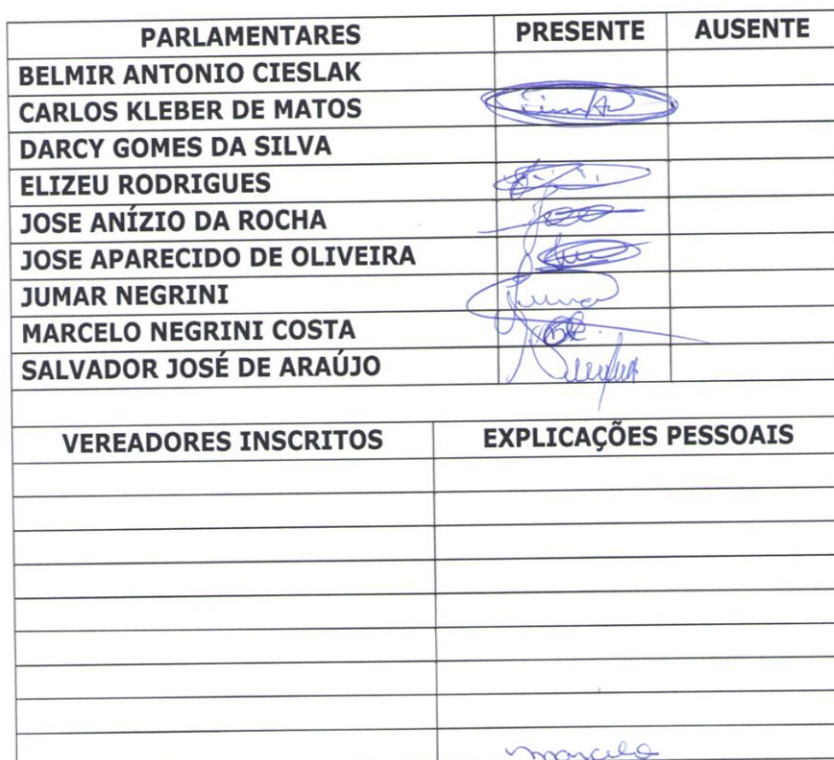 PARLAMENTARES PRESENTE AUSENTE
BELMIR ANTONIO CIESLAK
CARLOS KLEBER DE MATOS
DARCY GOMES DA SILVA
ELIZEU RODRIGUES
JOSE ANÍZIO DA ROCHA
JOSE APARECIDO DE OLIVEIRA
JUMAR NEGRINI
MARCELO NEGRINI COSTA
SALVADOR JOSÉ DE ARAÚJO
VEREADORES INSCRITOS EXPLICAÇÕES PESSOAIS
marcelo